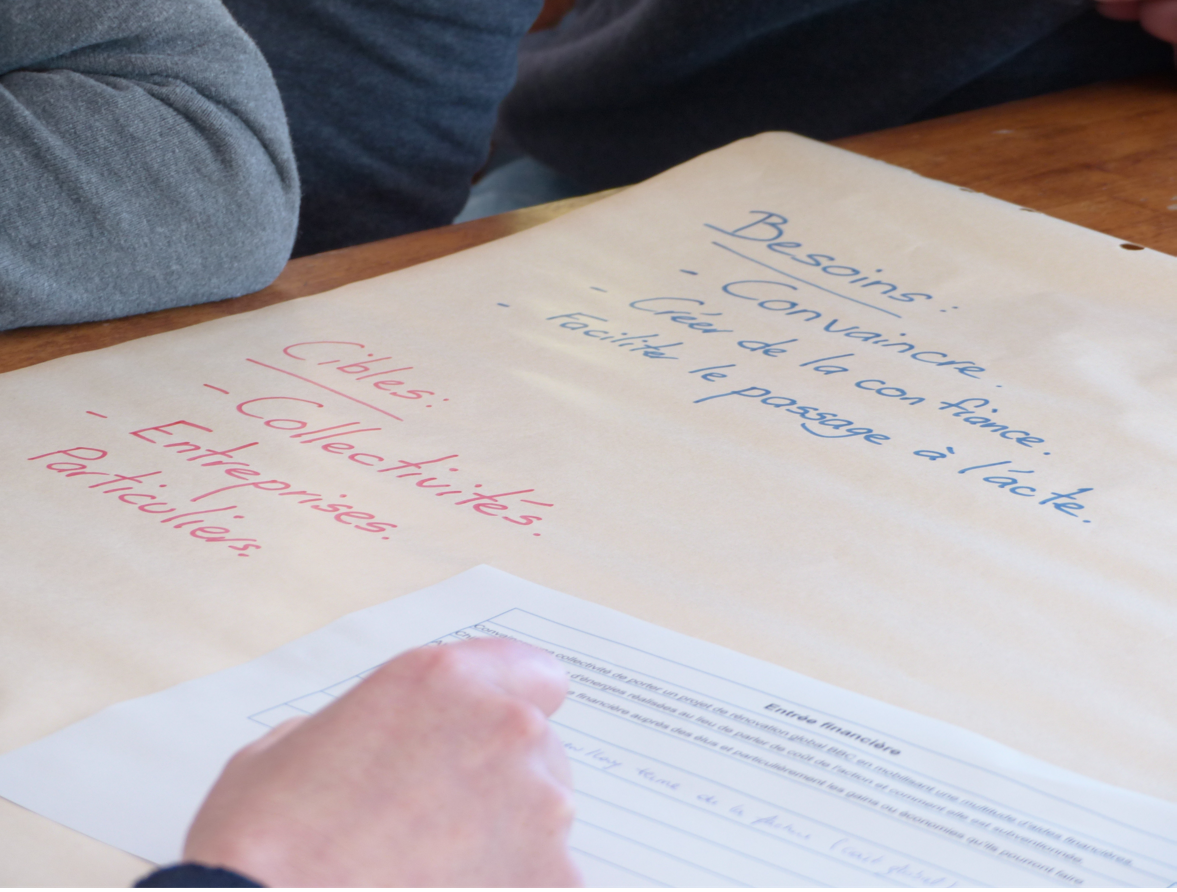 Besoins :
- Convaincre.
- Créer de la confiance.
- Faciliter le passage à l'acte.
Cibles:
- Collectivités.
- Entreprises.
Particuliers.
Entrée financière
collectivité de porter un projet de rénovation global BBC en mobilisant une multitude d'aides financières.
d'énergies réalisées au lieu de parler de coût de l'action et comment elle est subventionnée.
financière auprès des élus et particulièrement les gains ou économies qu'ils pourront faire
long terme de la